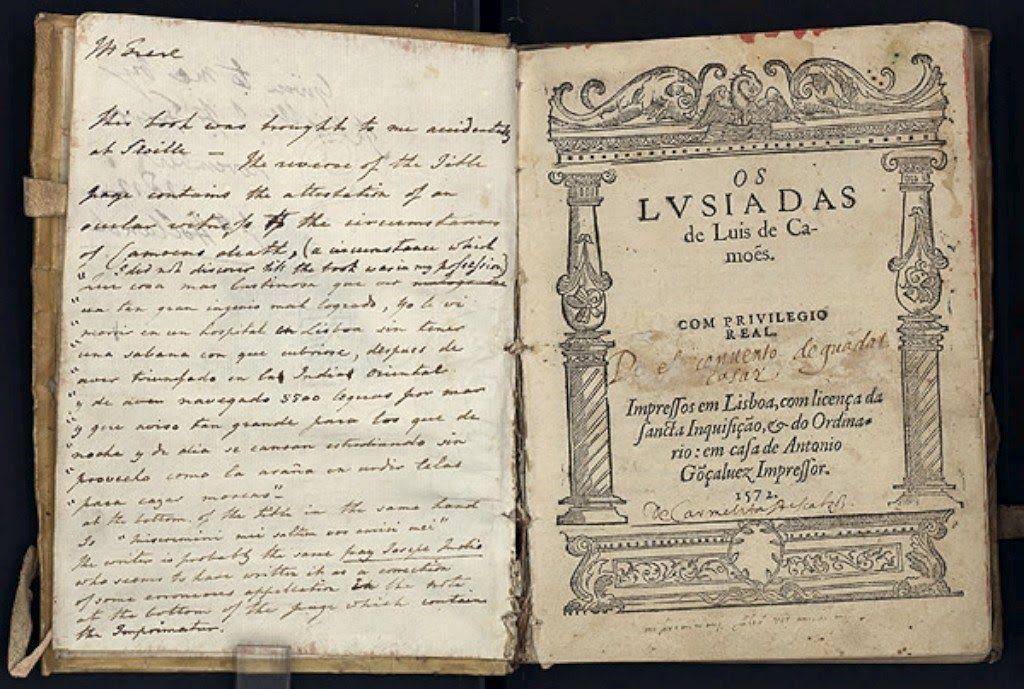 This book was brought to me accidentally
at Seville — The reverse of the Title
page contains the attestation of an
ocular witness to the circumstances
of Camoens death, (a circumstance which
I did not discover till the book was in my possession)
cosa mas lastimosa que ver
un tan gran ingenio mal logrado, yo le vi
morir en un hospital en Lisboa sin tener
una sabana con que cubrirse, despues de
aver triunfado en la India Oriental
y de aver navegado 5500 leguas por mar
y que aviso tan grande para los que de
noche y de dia se cansan estudiando sin
provecho como la araña en urdir telas
para cazar moscas"
at the bottom of the table in the same hand
is "miseremini mei saltem vos amici mei"
The writer is probably the same fray Joseph Indio
who seems to have written it as a correction
of some erroneous appellation in the note
at the bottom of the page which contains
the Imprimatur.
OS
LVSIADAS
de Luis de Ca-
moẽs.
COM PRIVILEGIO
REAL.
De el convento de guadal
cazar
Impreſſos em Lisboa, com licença da
ſancta Inquiſição, & do Ordina-
rio: em caſa de Antonio
Gõçaluez Impreſſor.
1572.
de Carmelitas